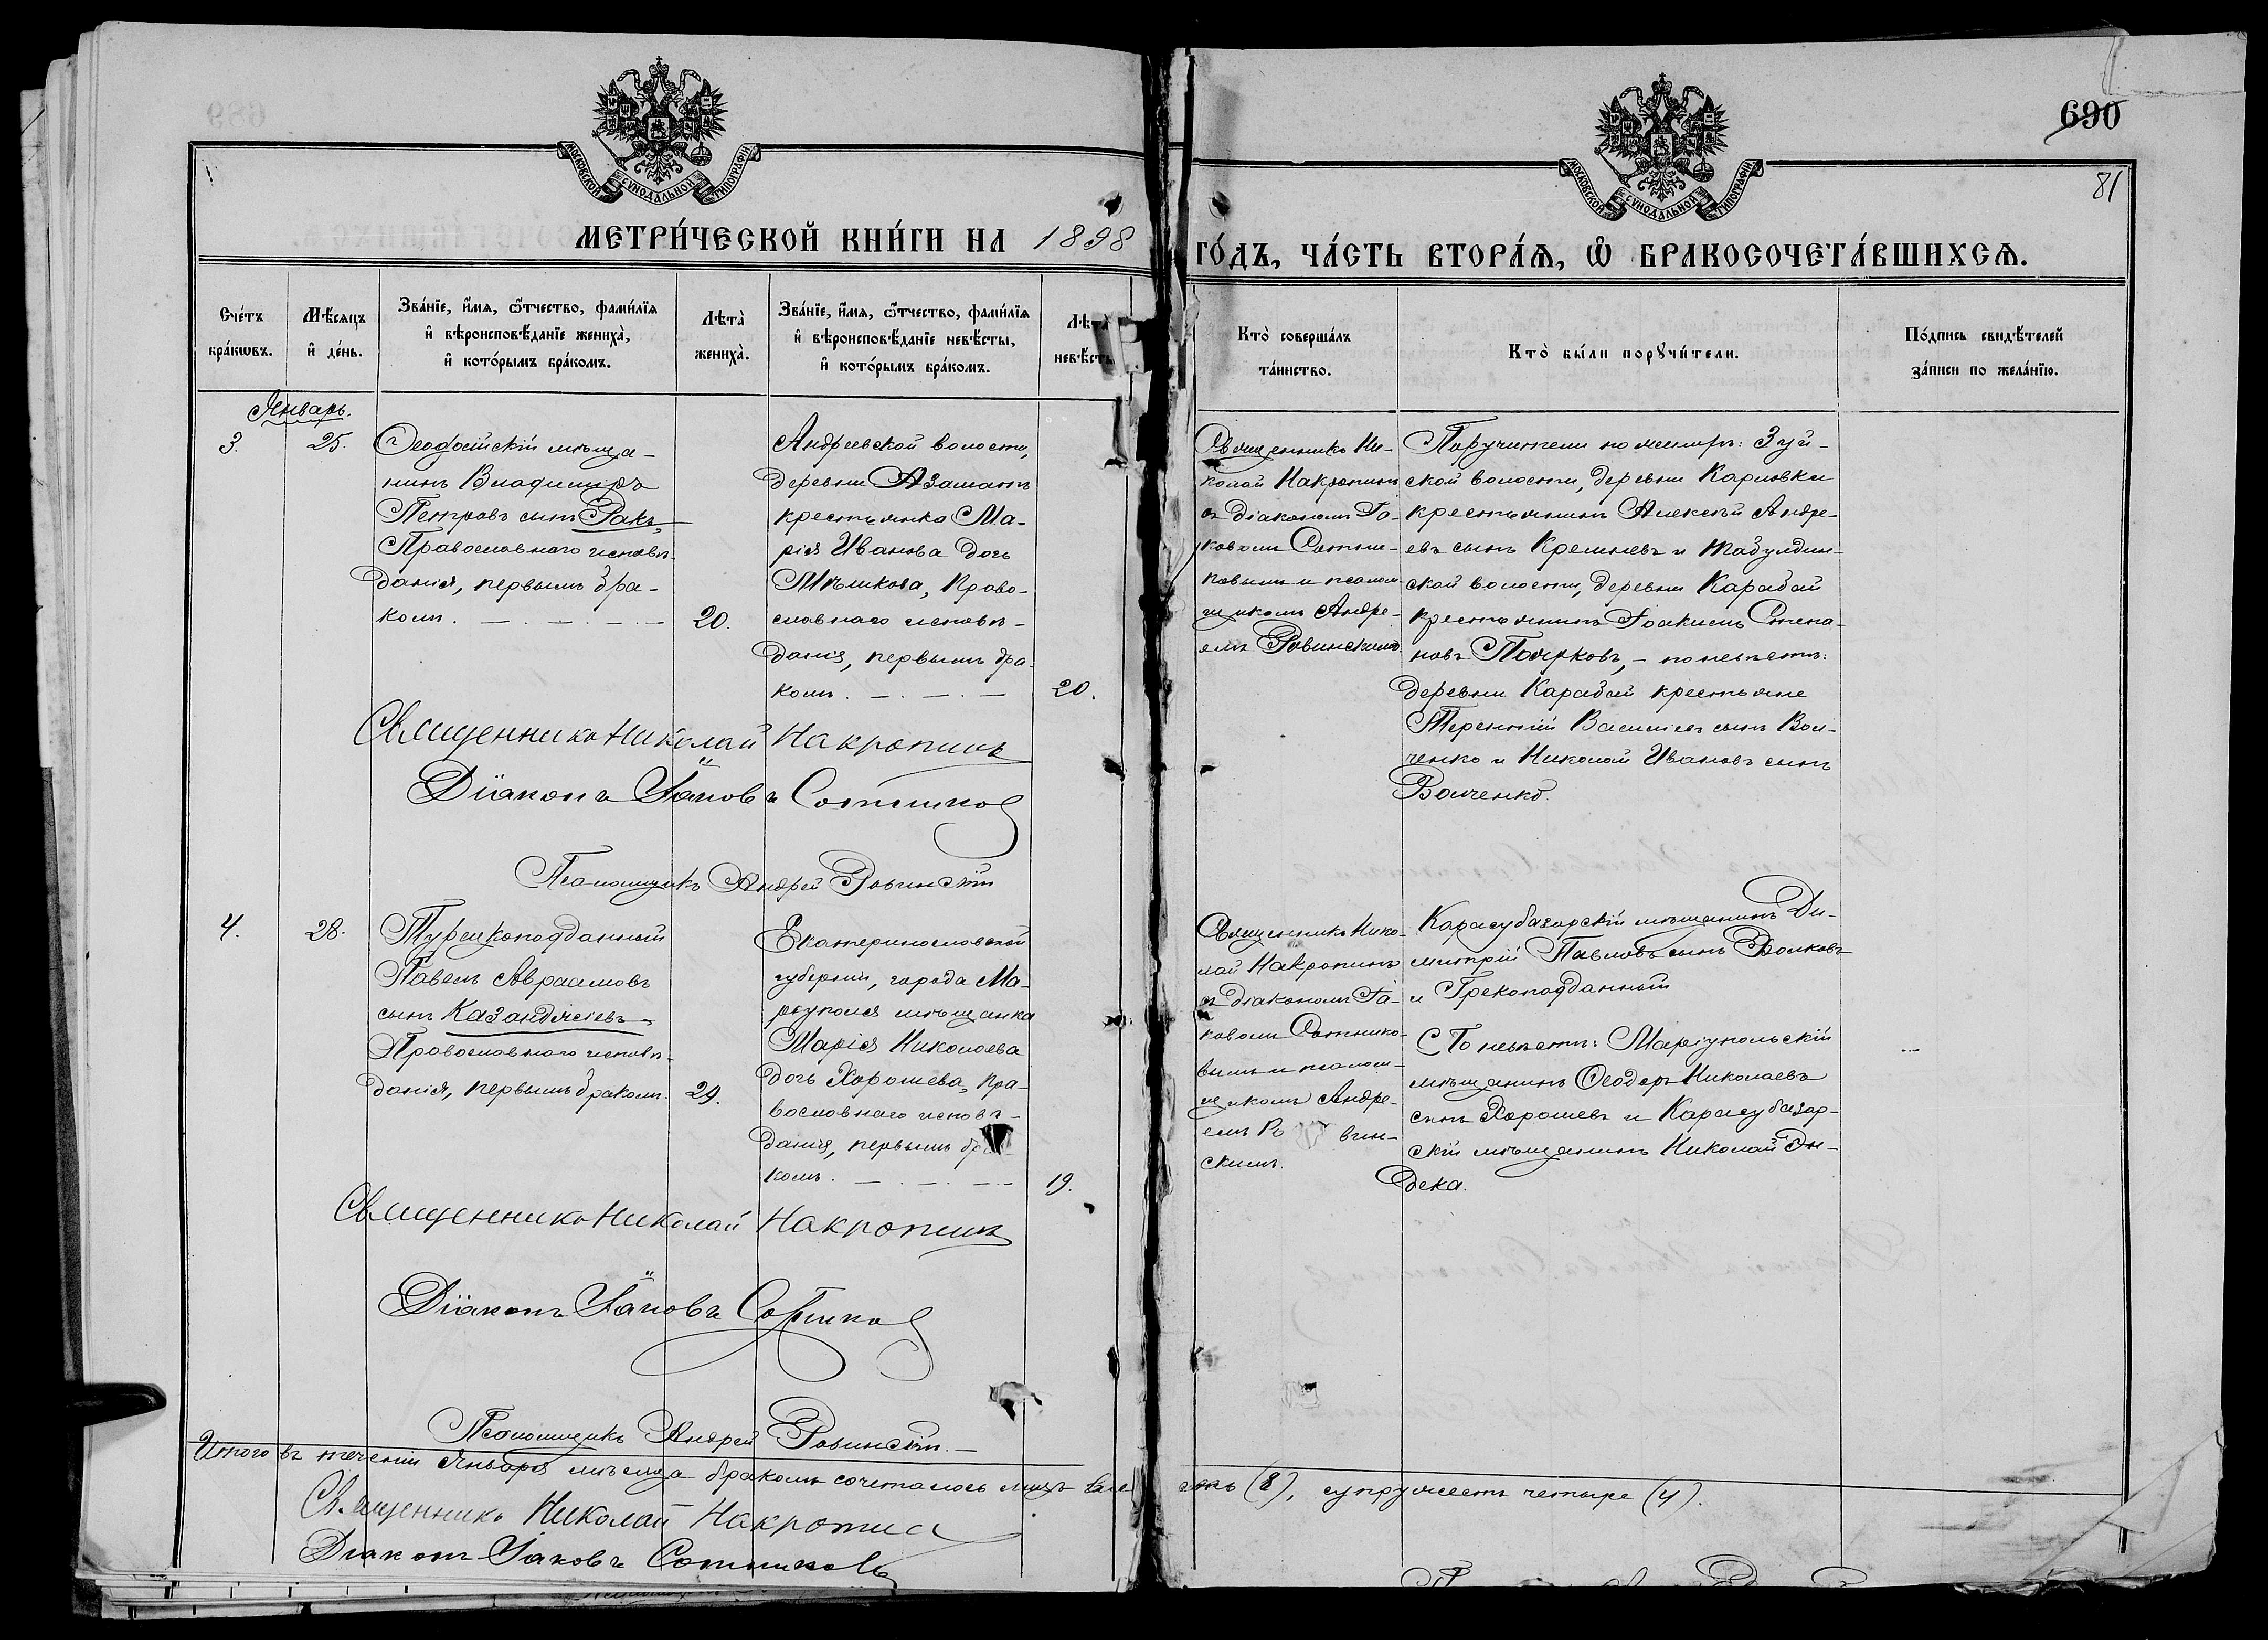 690
81
МОСКОВСКОЙ СѴНОДАЛЬНОЙ ТИПОГРАФІИ
МОСКОВСКОЙ СѴНОДАЛЬНОЙ ТИПОГРАФІИ
МЕТРИ́ЧЕСКОЙ КНИ́ГИ НА 1898
ГО́ДЪ, ЧА́СТЬ ВТОРА́Ѧ, Ѽ БРАКОСОЧЕТА́ВШИХСѦ.
Сче́тъ
бра́кѡвъ.
Мѣ́сяцъ
и҆ де́нь.
Зва́нїе, и҆́мя, ѻ҆́тчество, фами́лїя
и҆ вѣроисповѣ́данїе жениха̀,
и҆ кото́рымъ бра́комъ.
Лѣта̀
жениха̀.
Зва́нїе, и҆́мя, ѻ҆́тчество, фами́лїя
и҆ вѣроисповѣ́данїе невѣ́сты,
и҆ кото́рымъ бра́комъ.
Лѣта̀
невѣ́сты
Кто̀ соверша́лъ
та́инство.
Кто̀ бы́ли порꙋчи́тели.
По́дпись свидѣ́телей
за́писи по жела́нїю.
Январь.
3.
25.
Ѳеодосійскій мѣща-
нинъ Владиміръ
Петровъ сынъ Ракъ,
Православнаго исповѣ-
данія, первымъ бра-
комъ.
20.
Андреевской волости,
деревни Азаматъ
крестьянка Ма-
рія Иванова дочь
Мѣшкова, Право-
славнаго исповѣ-
данія, первымъ бра-
комъ.
20.
Священникъ Ни-
колай Накропинъ
съ діакономъ Іа-
ковомъ Сотни-
ковымъ и псалом-
щикомъ Андре-
емъ Ровинскимъ
Поручители по женихѣ: Зуй-
ской волости, деревни Карловки
крестьянинъ Алексѣй Андре-
евъ сынъ Кремневъ и Табулдин-
ской волости, деревни Карабай
крестьянинъ Іоакимъ Степа-
новъ Поярковъ, – по невѣстѣ:
деревни Карабай крестьяне
Терентій Василіевъ сынъ Вол-
ченко и Николай Ивановъ сынъ
Волченко.
Священникъ Николай Накропинъ
Діаконъ Іаковъ Сотников
Псаломщикъ Андрей Ровинскій
4.
28.
Турецкоподданный
Павелъ Авраамовъ
сынъ Казанджіевъ
Православнаго исповѣ-
данія, первымъ бракомъ.
29.
Екатеринославской
губерніи, города Ма-
ріуполя мѣщанка
Марія Николаева
дочь Хорошева, Пра-
вославнаго исповѣ-
данія, первымъ бра-
комъ.
19.
Священникъ Нико-
лай Накропинъ
съ діакономъ Іа-
ковомъ Сотнико-
вымъ и псалом-
щикомъ Андре-
емъ Ро вин-
скимъ.
Карасубазарскій мѣщанинъ Ди-
митрій Павловъ сынъ Волковъ
и Грекоподданный
По невѣстѣ: Маріупольскій
мѣщанинъ Ѳеодоръ Николаевъ
сынъ Хорошевъ и Карасубазар-
скій мѣщанинъ Николай
дека.
Священникъ Николай Накропинъ
Діаконъ Іаковъ Сотников
Псаломщикъ Андрей Ровинскій.
Итого въ теченіи Января мѣсяца бракомъ сочеталось лицъ восемь (8), супружествъ четыре (4).
Священникъ Николай Накропинъ
Діаконъ Іаковъ Сотниковъ